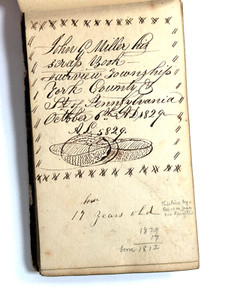 John G Miller his
scrap Book
Fairview Township
York County &
St of Pennsylvania
October 6th AD 1829
A L 5829
now
17 years old
1829
17
born 1812